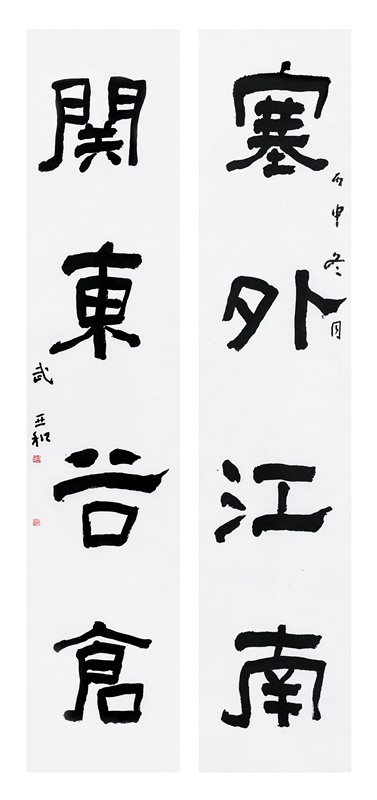 塞外江南
丙申冬月
関東谷倉
武